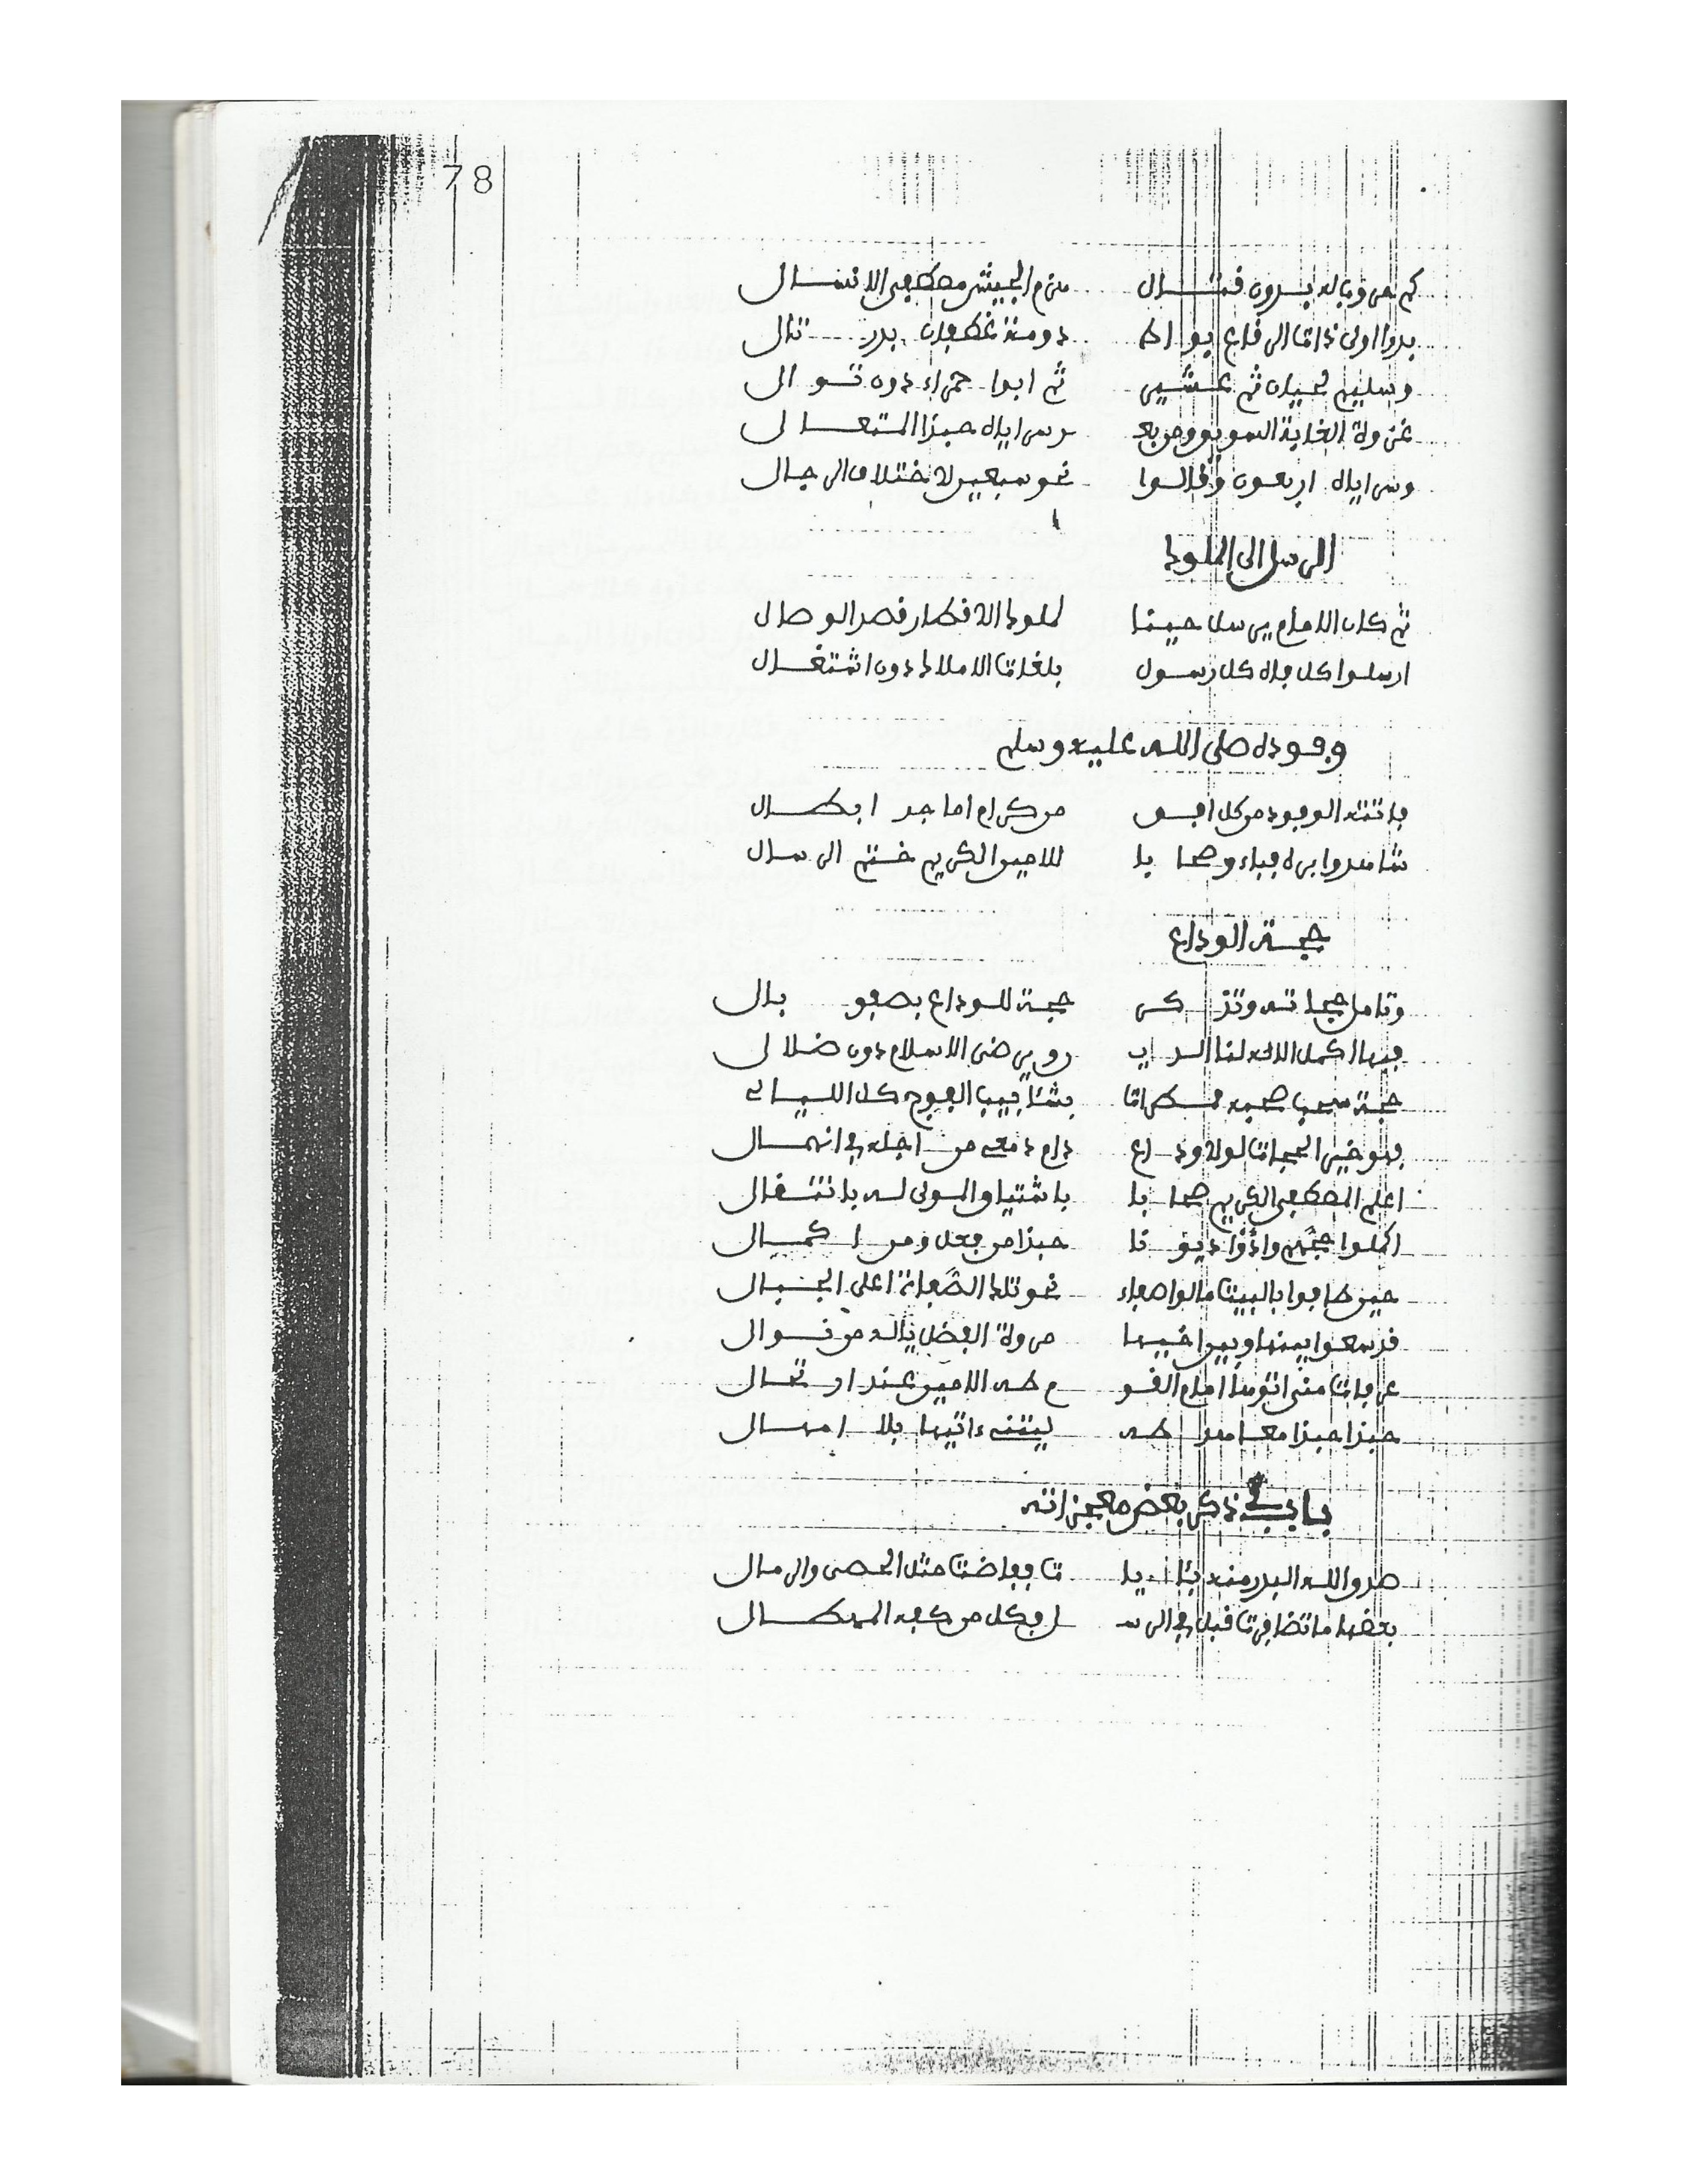 78
كم حروب له بدون قتال هزم الجيش مصطفى الانسال
بدر اولى ذات الرقاع بواط دومة غطفان بدر تال
وسليم لحيان ثم عشير ثم ابوا حمراء دون توال
غزوة الغابة السويق وربع وسراياه حبذا المتعالى
وسراياه اربعون وقالوا نحو سبعين لاختلاف الرجال
الرسل الى الملوك
ثم كان الامام يرسل حينا لملوك الاقطار قصد الوصال
ارسلوا كل فاه كل رسول بلغات الاملاك دون اشتغال
وفوده صلى الله عليه وسلم
فاتته الوفود من كل افق من كرام اماجد ابطال
شاهدوا برّه فباءوا صحابا للامين الكريم ختم الرسال
حجة الوداع
وتامل حجاته وتذكر حجة للوداع بصفو بال
فيها اكمل الاله لنا الدين ورضى الاسلام دون ضلال
حجة صحبه مسكرات بشتات بين الفوج كل الليالى
فهو خير الحجات لولا وداع دام دمعى من اجله في انهمال
اعلم المصطفى الكريم صحابا باشتياق المولى له بانتقال
اكملوا حجهم وأدّوا ديونا حبذا من فعل ومن اكمال
حين طافوا بالبيت مالوا صفاء نحو تلك الصفاة اعلى الجبال
قد سعوا بينها وبين اخيها مروة الفضل ياله من نوال
عرفات منى اتوها امام القوم طه الامين عند ارتحال
حبذا حبذا معاهد طه ليتنى ءاتيها بلا امهال
باب في ذكر بعض معجزاته
صدق الله البدر منه بئايات ففاضت مثل الحصى والرمال
بعضها ما تضافرت قبل في الرسل فكل من كفه الهطال